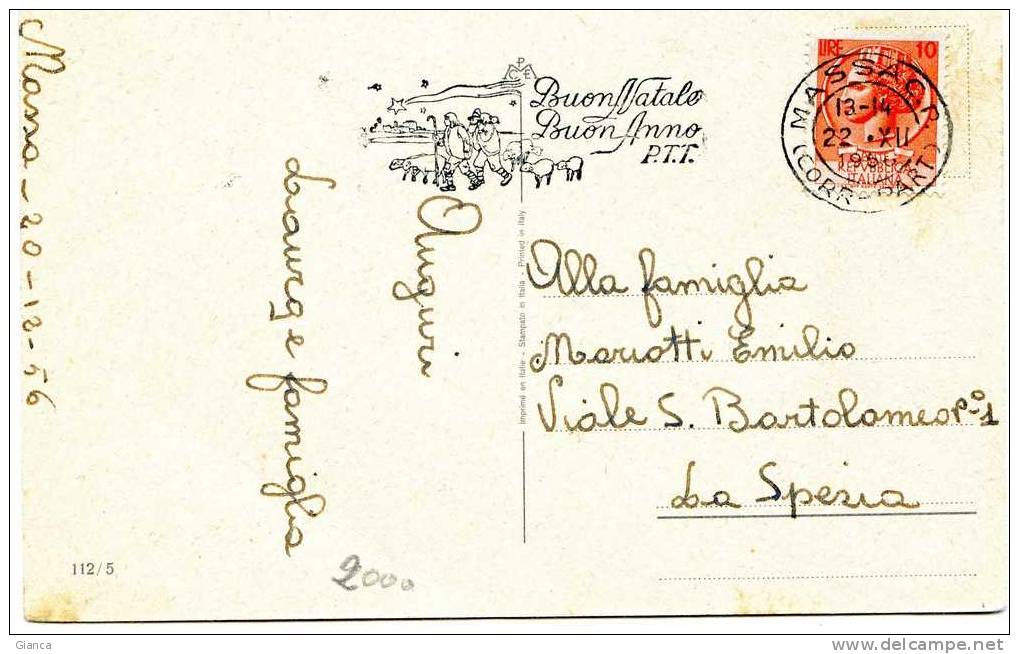 Massa - 20-12-56
Auguri
Laura e famiglia
112/5
2000
Imprimé en Italie - Stampato in Italia - Printed in Italy
C P E
Buon Natale
Buon Anno
P.T.T.
LIRE 10
REPVBBLICA
ITALIANA
MASSA C.P.
13-14
22 • XII
(CORR - PART)
Alla famiglia
Mariotti Emilio
Viale S. Bartolomeo n° 1
La Spezia
Gianca
delcampe.net